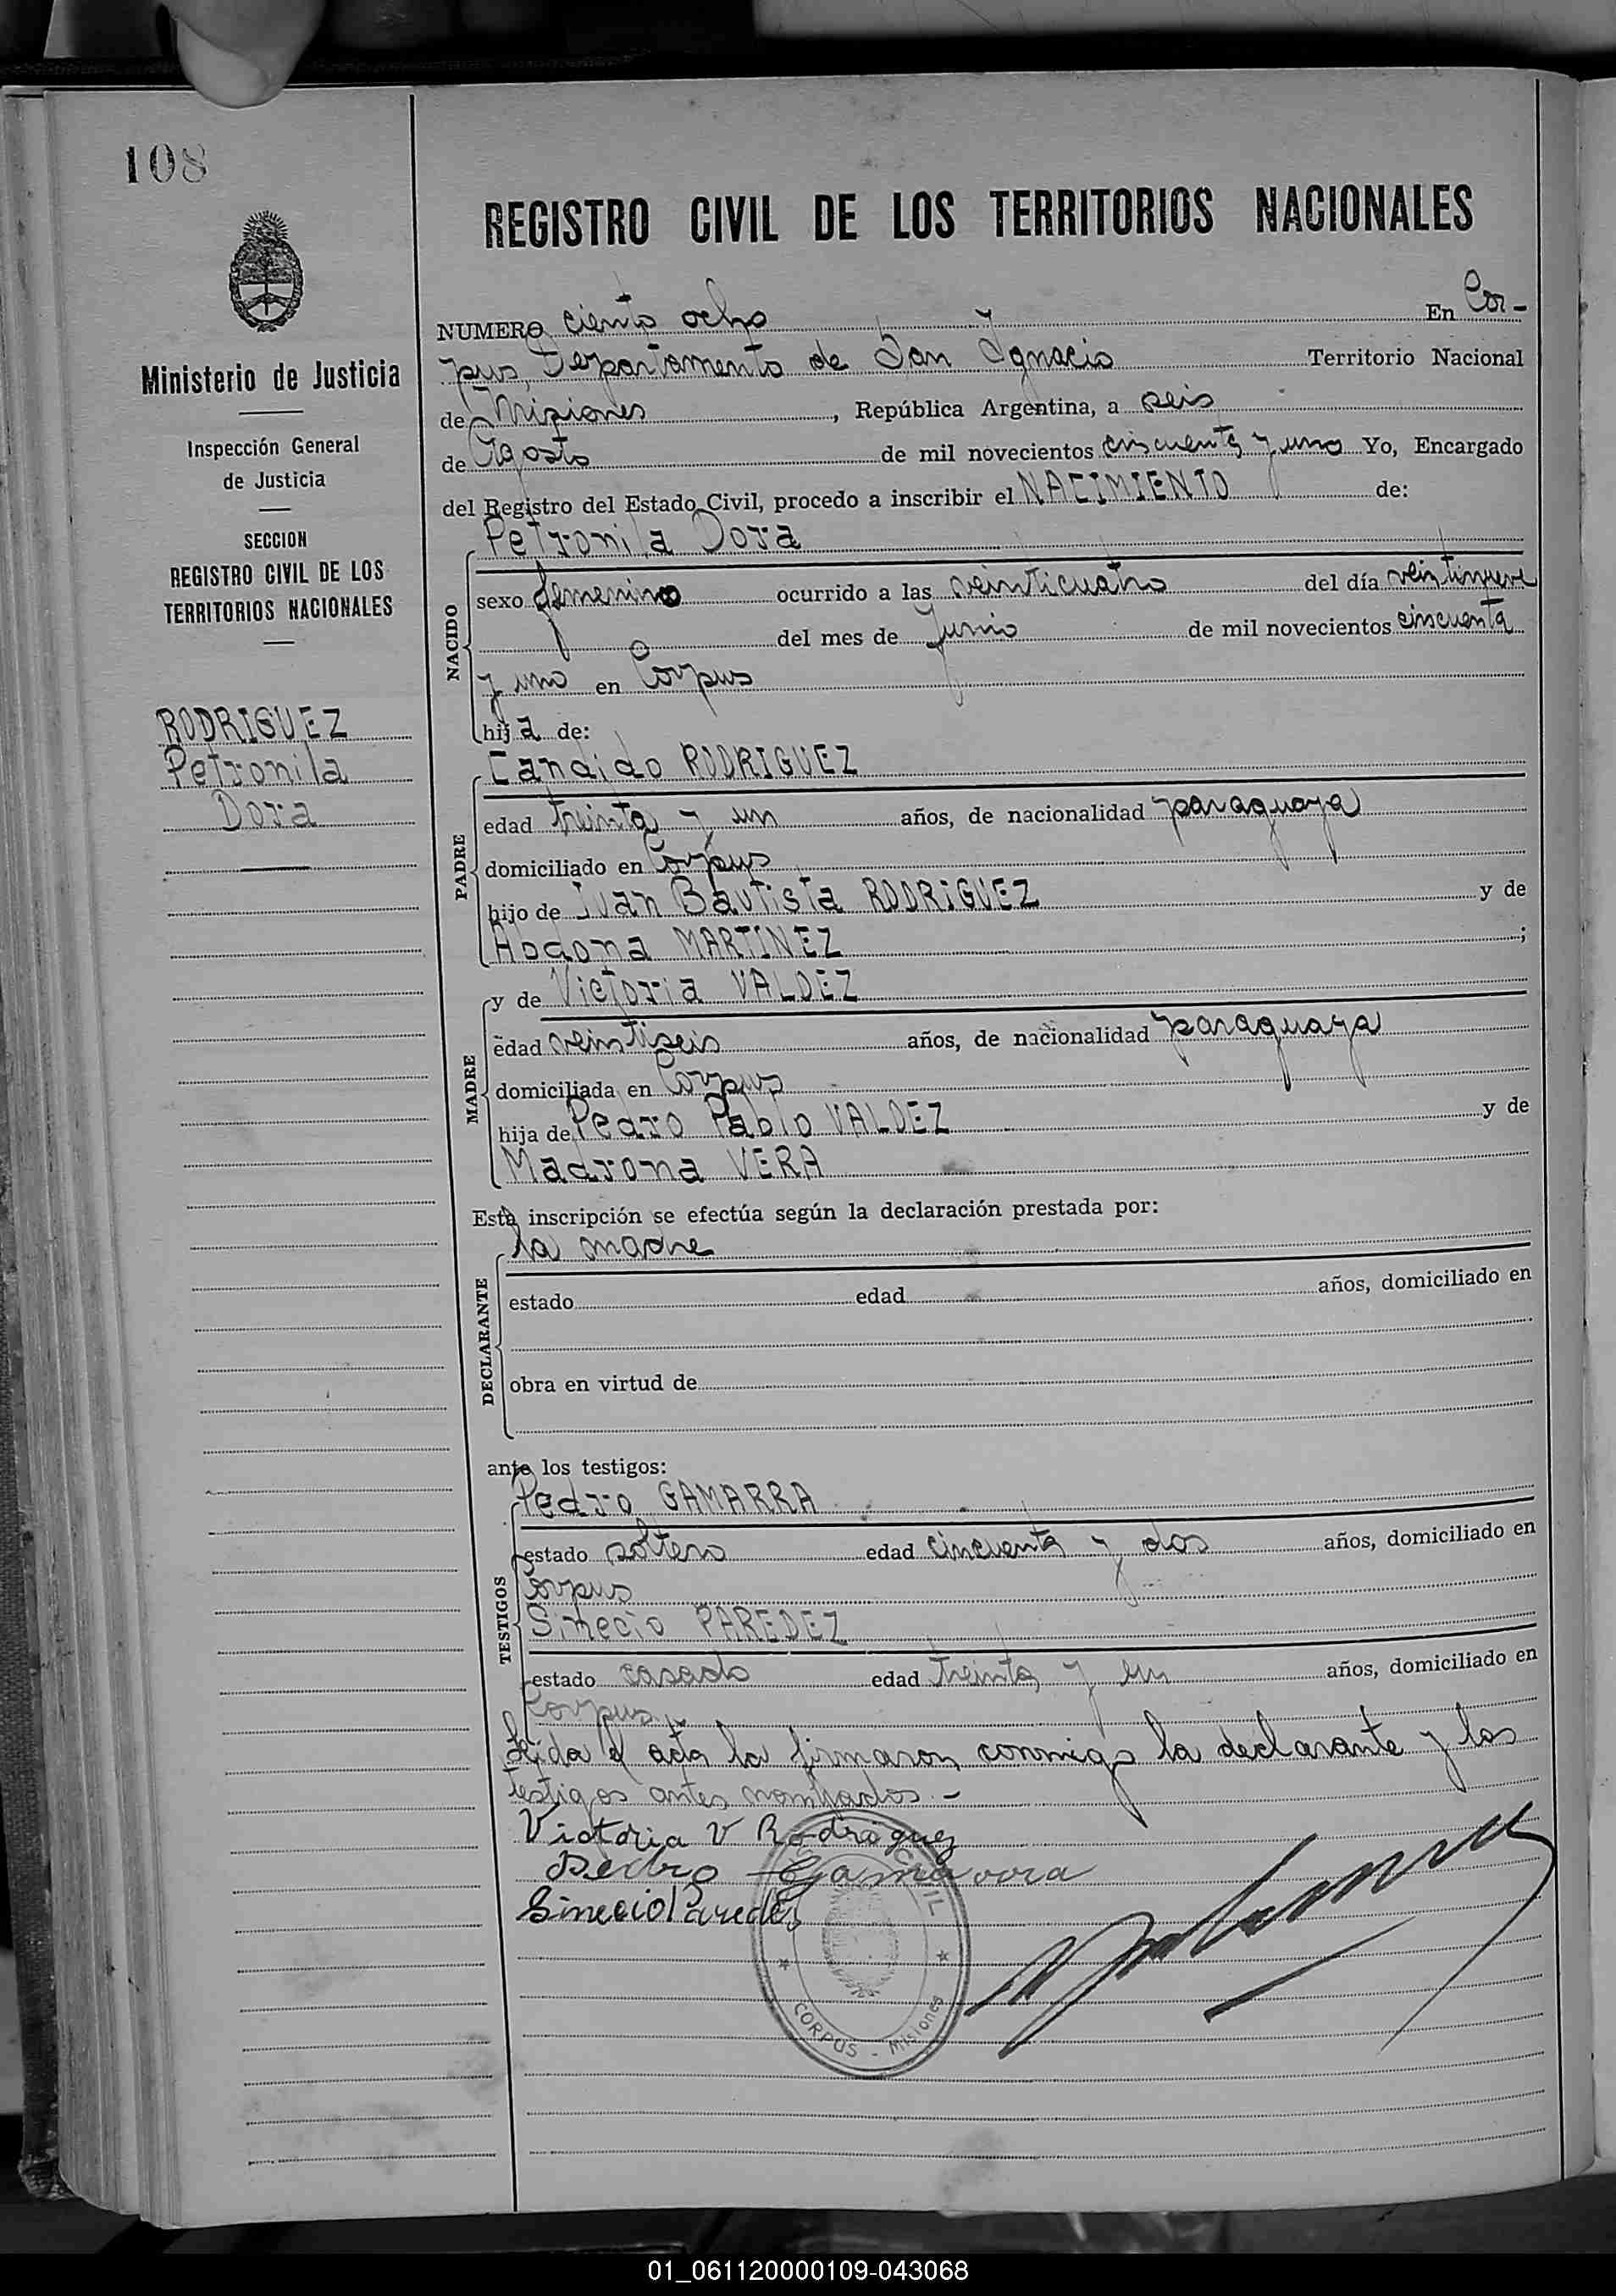 108
Ministerio de Justicia
Inspección General
de Justicia
SECCION
REGISTRO CIVIL DE LOS
TERRITORIOS NACIONALES
RODRIGUEZ
Petronila
Dora
REGISTRO CIVIL DE LOS TERRITORIOS NACIONALES
NUMERO ciento ocho En Cor-
pus, Departamento de San Ignacio Territorio Nacional
de Misiones, República Argentina, a seis
de Agosto de mil novecientos cincuenta y uno Yo, Encargado
del Registro del Estado Civil, procedo a inscribir el NACIMIENTO de:
Petronila Dora
NACIDO
sexo femenino ocurrido a las veinticuatro del día veintinueve
del mes de Junio de mil novecientos cincuenta
y uno en Corpus
hija de:
Candido RODRIGUEZ
PADRE
edad treinta y un años, de nacionalidad paraguaya
domiciliado en Corpus
hijo de Juan Bautista RODRIGUEZ y de
Abdona MARTINEZ;
y de Victoria VALDEZ
MADRE
edad veintiseis años, de nacionalidad paraguaya
domiciliada en Corpus
hija de Pedro Pablo VALDEZ y de
Madrona VERA
Esta inscripción se efectúa según la declaración prestada por:
la madre
DECLARANTE
estado edad años, domiciliado en
obra en virtud de
ante los testigos:
Pedro GAMARRA
TESTIGOS
estado soltero edad cincuenta y dos años, domiciliado en
Corpus
Sinecio PAREDEZ
estado casado edad treinta y un años, domiciliado en
Corpus
Leida el acta la firmaron conmigo la declarante y los
testigos antes nombrados.-
Victoria V Rodriguez
Pedro Gamarra
Sinecio Paredes
CIVIL
CORPUS - Misiones
01_061120000109-043068